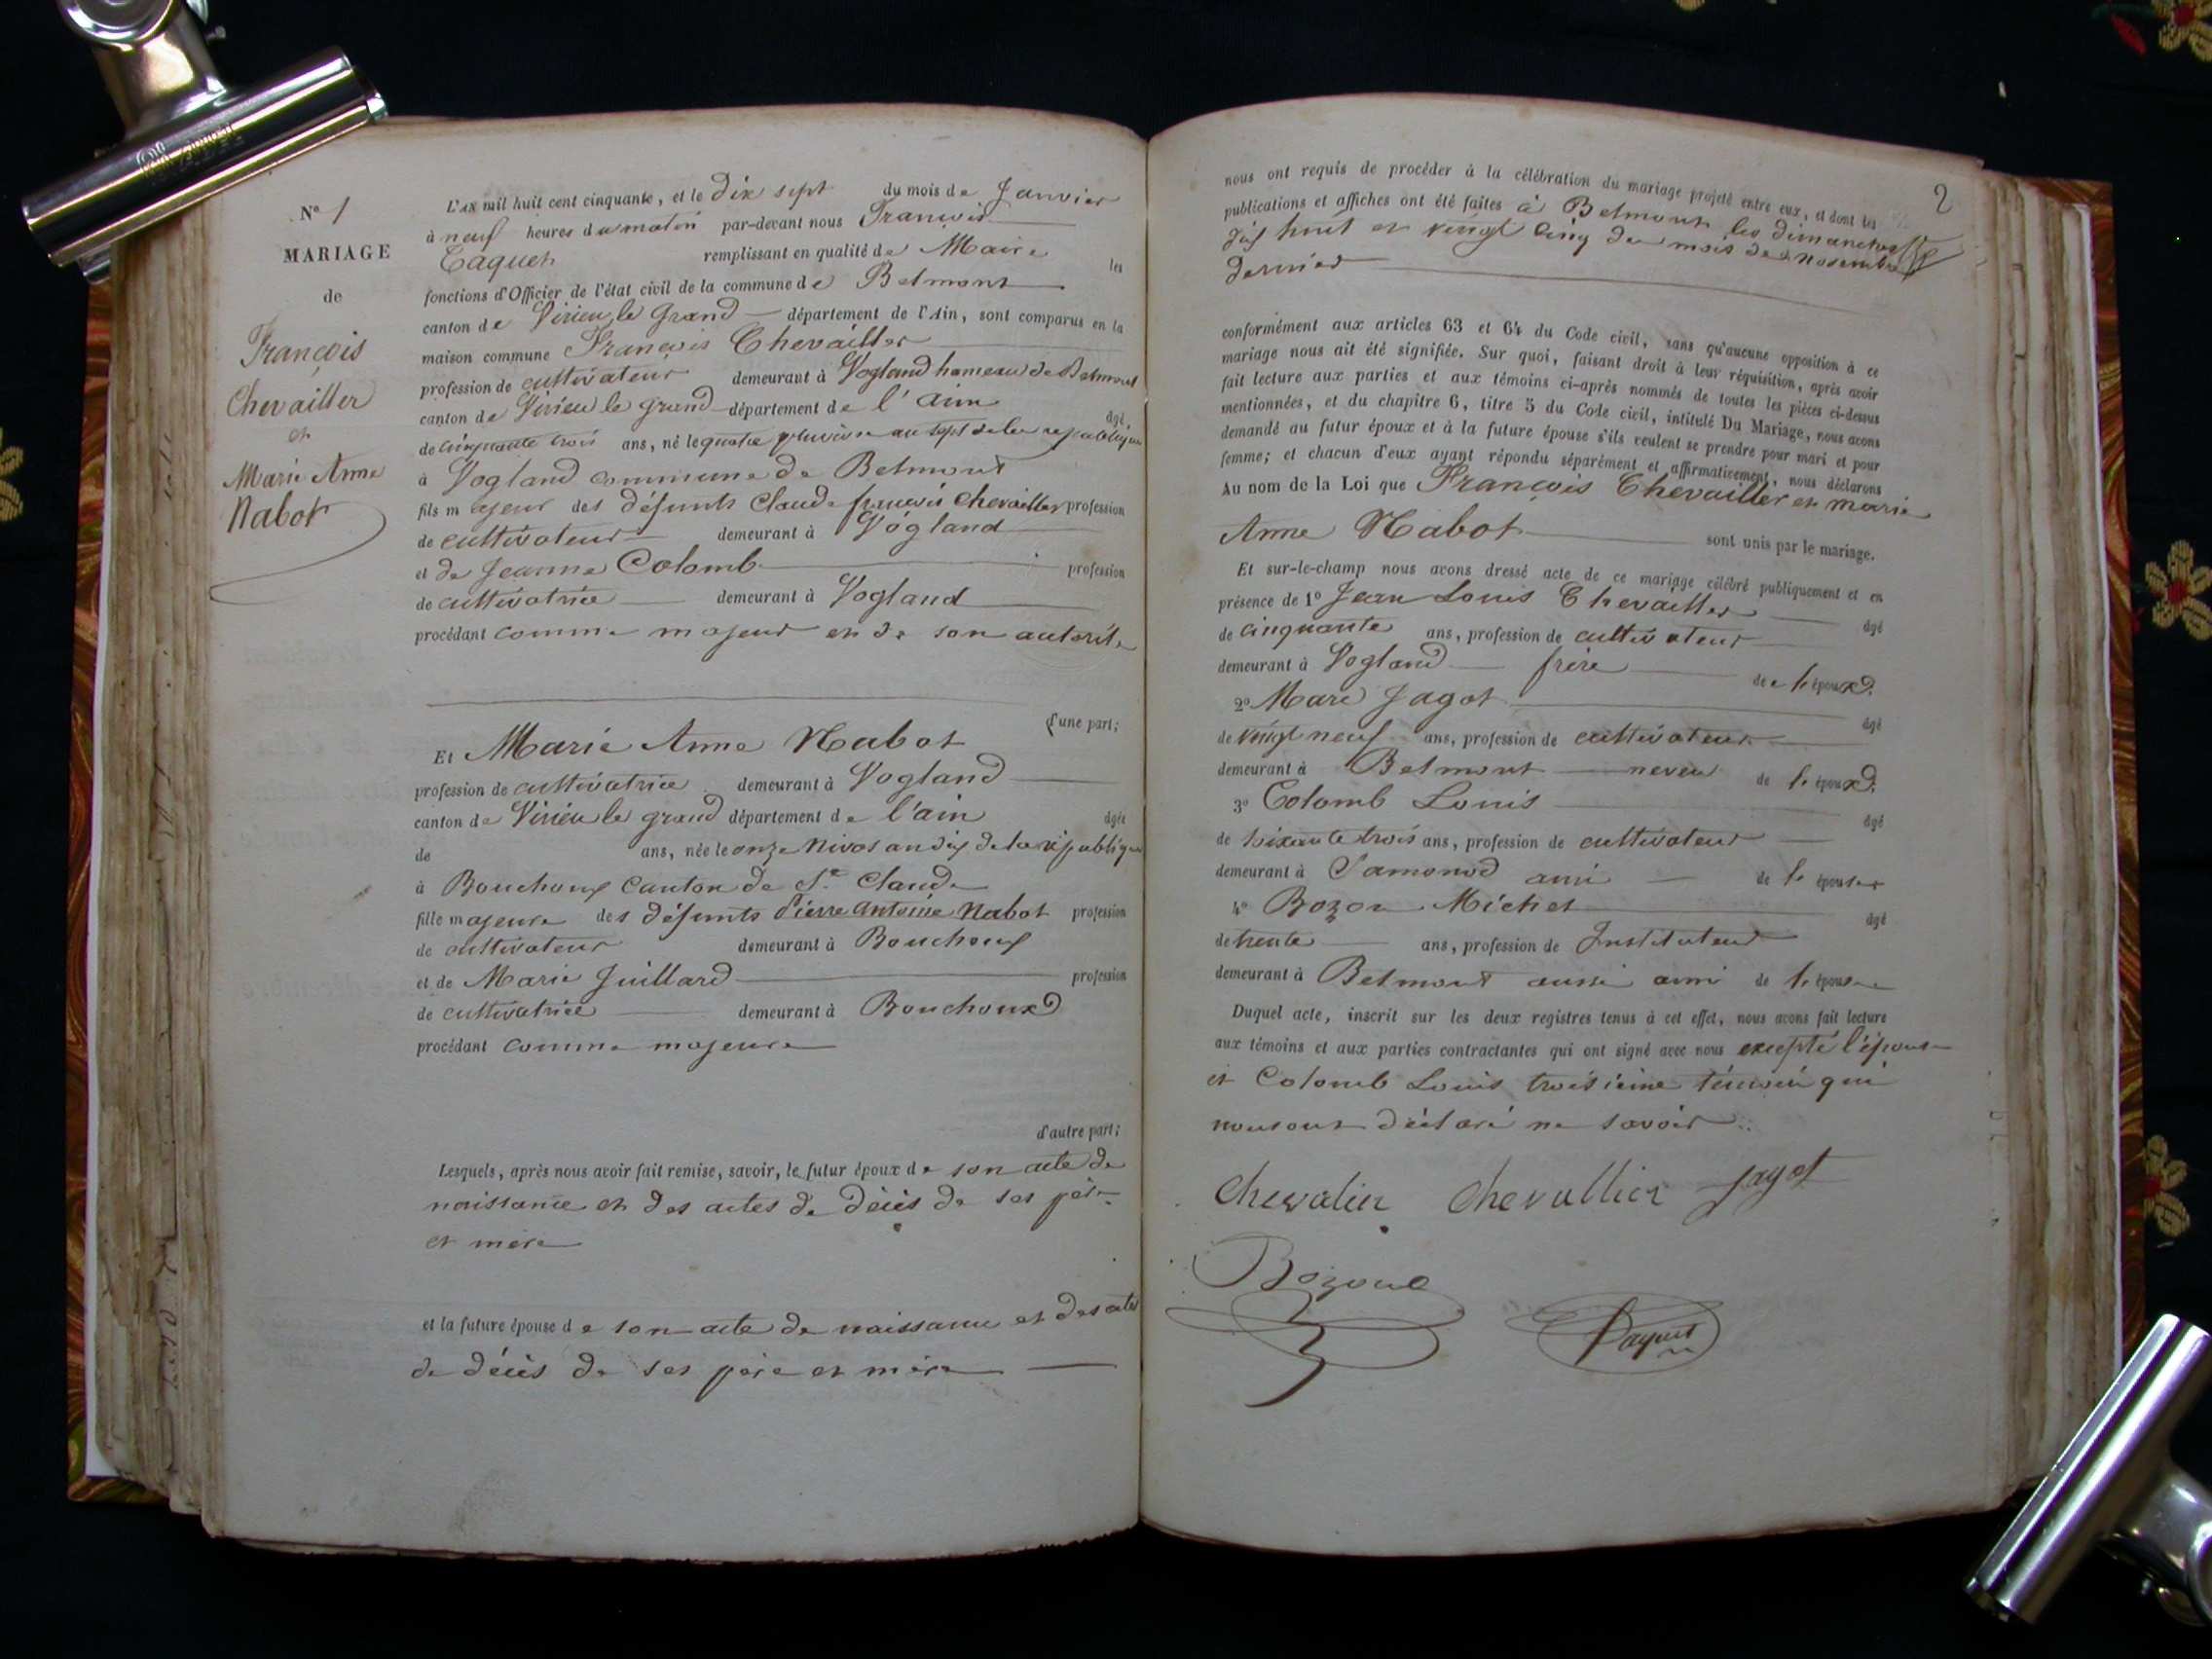 Nº 1
MARIAGE
de
François
Chevailler
et
Marie Anne
Nabot
L'AN mil huit cent cinquante, et le dix sept du mois de Janvier
à neuf heures du matin par-devant nous François
remplissant en qualité de Maire les
fonctions d'Officier de l'état civil de la commune de Belmont
canton de Virieu le grand département de l'Ain, sont comparus en la
maison commune François Chevailler
profession de cultivateur demeurant à Vogland hameau de Belmont
canton de Virieu le grand département de l'ain âgé,
de cinquante trois ans, né le quatre pluviose an sept de la republique
à Vogland commune de Belmont
fils majeur des défunts Claude françois Chevailler profession
de cultivateur demeurant à Vogland
et de Jeanne Colomb profession
de cultivatrice demeurant à Vogland
procédant comme majeur et de son autorité
d'une part;
Et Marie Anne Nabot
profession de cultivatrice demeurant à Vogland
canton de Virieu le grand département de l'ain âgée
de ans, née le onze Nivos an dix de la république
à Bouchoux Canton de St. Claude
fille majeure des défunts Pierre antoine Nabot profession
de cultivateur demeurant à Bouchoux
et de Marie Juillard profession
de cultivatrice demeurant à Bouchoux
procédant comme majeure
d'autre part;
Lesquels, après nous avoir fait remise, savoir, le futur époux de son acte de
naissance et des actes de décès de ses père
et mère
et la future épouse de son acte de naissance et des actes
de décès de ses père et mère
2
nous ont requis de procéder à la célébration du mariage projeté entre eux, et dont les
publications et affiches ont été faites à Belmont les dimanches
dix huit et vingt cinq du mois de novembre
dernier
conformément aux articles 63 et 64 du Code civil, sans qu'aucune opposition à ce
mariage nous ait été signifiée. Sur quoi, faisant droit à leur réquisition, après avoir
fait lecture aux parties et aux témoins ci-après nommés de toutes les pièces ci-dessus
mentionnées, et du chapitre 6, titre 5 du Code civil, intitulé Du Mariage, nous avons
demandé au futur époux et à la future épouse s'ils veulent se prendre pour mari et pour
femme; et chacun d'eux ayant répondu séparément et affirmativement, nous déclarons
Au nom de la Loi que François Chevailler et marie
Anne Nabot sont unis par le mariage.
Et sur-le-champ nous avons dressé acte de ce mariage célébré publiquement et en
présence de 1º Jean Louis Chevailler âgé
de cinquante ans, profession de cultivateur
demeurant à Vogland frère de l'époux
2º Marc Jagot âgé
de vingt neuf ans, profession de cultivateur
demeurant à Belmont neveu de l'époux
3º Colomb Louis âgé
de soixante trois ans, profession de cultivateur
demeurant à Samonod ami de l'épouse
4º Bozon Michel âgé
de trente ans, profession de Instituteur
demeurant à Belmont aussi ami de l'épouse
Duquel acte, inscrit sur les deux registres tenus à cet effet, nous avons fait lecture
aux témoins et aux parties contractantes qui ont signé avec nous excepté l'épouse
et Colomb Louis troisieme témoin qui
nous ont déclaré ne savoir
Chevalier Chevallier Jagot